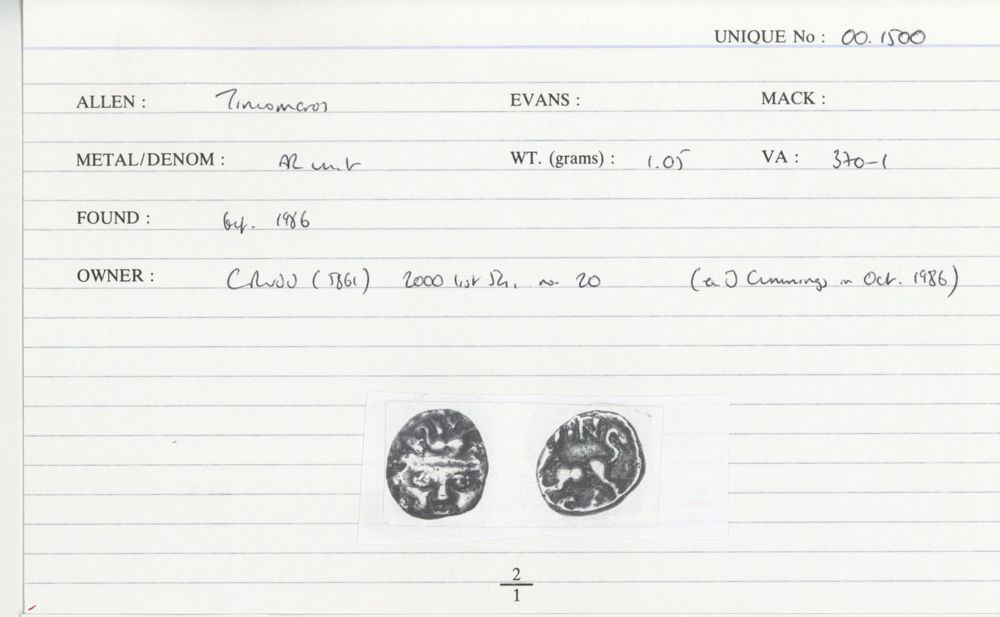 UNIQUE No : 00. 1500
ALLEN : Tincomaros EVANS : MACK :
METAL/DENOM : AR unit WT. (grams) : 1.05 VA : 370-1
FOUND : bef. 1986
OWNER : C Rudd (5861) 2000 list 52, no. 20 (ex J Cummings in Oct. 1986)
2
1